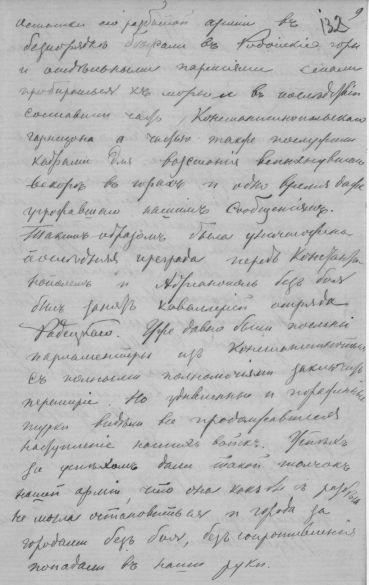 132
остатки его разбитой армии въ
безпорядкѣ бѣжали въ Родопскія горы
и отдѣльными партіями стали
пробираться къ морю и въ послѣдствіи
составили часть Константинопольскаго
гарнизона а частью также послужили
кадрами для возстанія вспыхнувшаго
вскорѣ въ горахъ и одно время даже
угрожавшаго нашимъ сообщеніямъ.
Такимъ образомъ была уничтожена
последняя преграда передъ Констан
нополемъ и Адріанополь безъ боя
былъ занятъ кавалеріей отряда
Радецкаго. Уже давно были посланы
парламентеры изъ Константинополя
съ полными полномочіями заключить
перемиріе. Но удивленные и пораженные
турки видели все продолжавшееся
наступленіе нашихъ войскъ. Успѣхъ
за успѣхомъ дали такой толчокъ
нашей арміи, что она какъ бы съ разбѣга
не могла остановиться и города за
городами безъ боя, безъ сопротивленія
попадали въ наши руки.